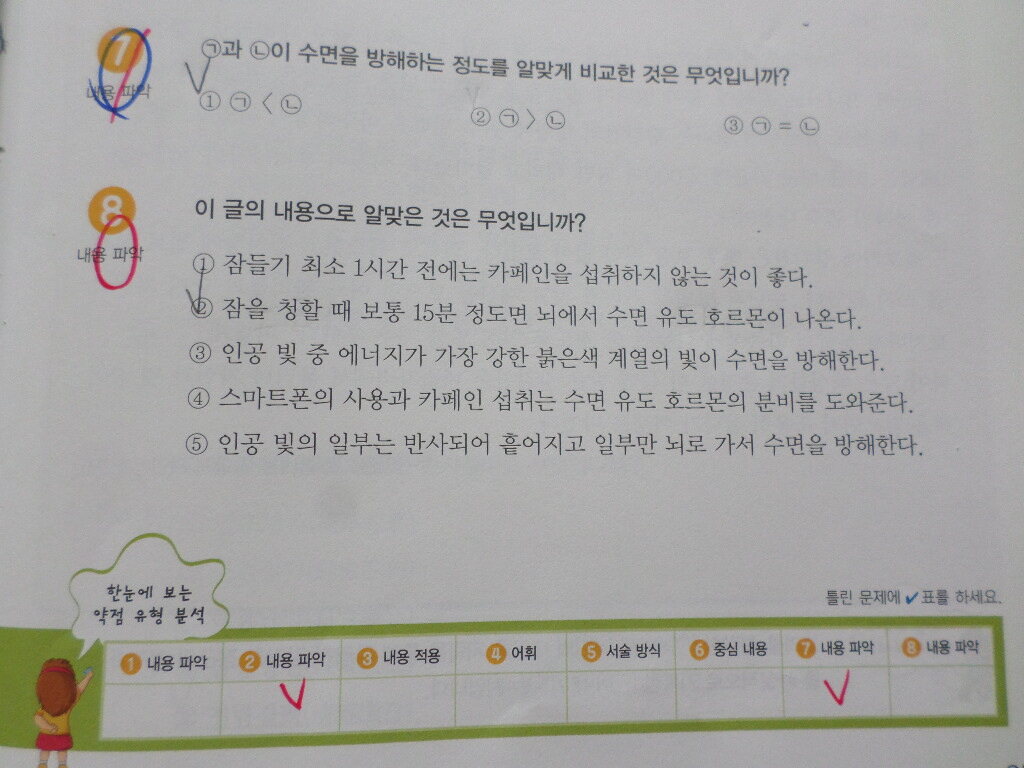 7 ㉠과 ㉡이 수면을 방해하는 정도를 알맞게 비교한 것은 무엇입니까?
내용 파악
① ㉠ < ㉡ ② ㉠ > ㉡ ③ ㉠ = ㉡
8 이 글의 내용으로 알맞은 것은 무엇입니까?
내용 파악
① 잠들기 최소 1시간 전에는 카페인을 섭취하지 않는 것이 좋다.
② 잠을 청할 때 보통 15분 정도면 뇌에서 수면 유도 호르몬이 나온다.
③ 인공 빛 중 에너지가 가장 강한 붉은색 계열의 빛이 수면을 방해한다.
④ 스마트폰의 사용과 카페인 섭취는 수면 유도 호르몬의 분비를 도와준다.
⑤ 인공 빛의 일부는 반사되어 흩어지고 일부만 뇌로 가서 수면을 방해한다.
한눈에 보는
약점 유형 분석
틀린 문제에 ✔표를 하세요.
1 내용 파악 2 내용 파악 3 내용 적용 4 어휘 5 서술 방식 6 중심 내용 7 내용 파악 8 내용 파악